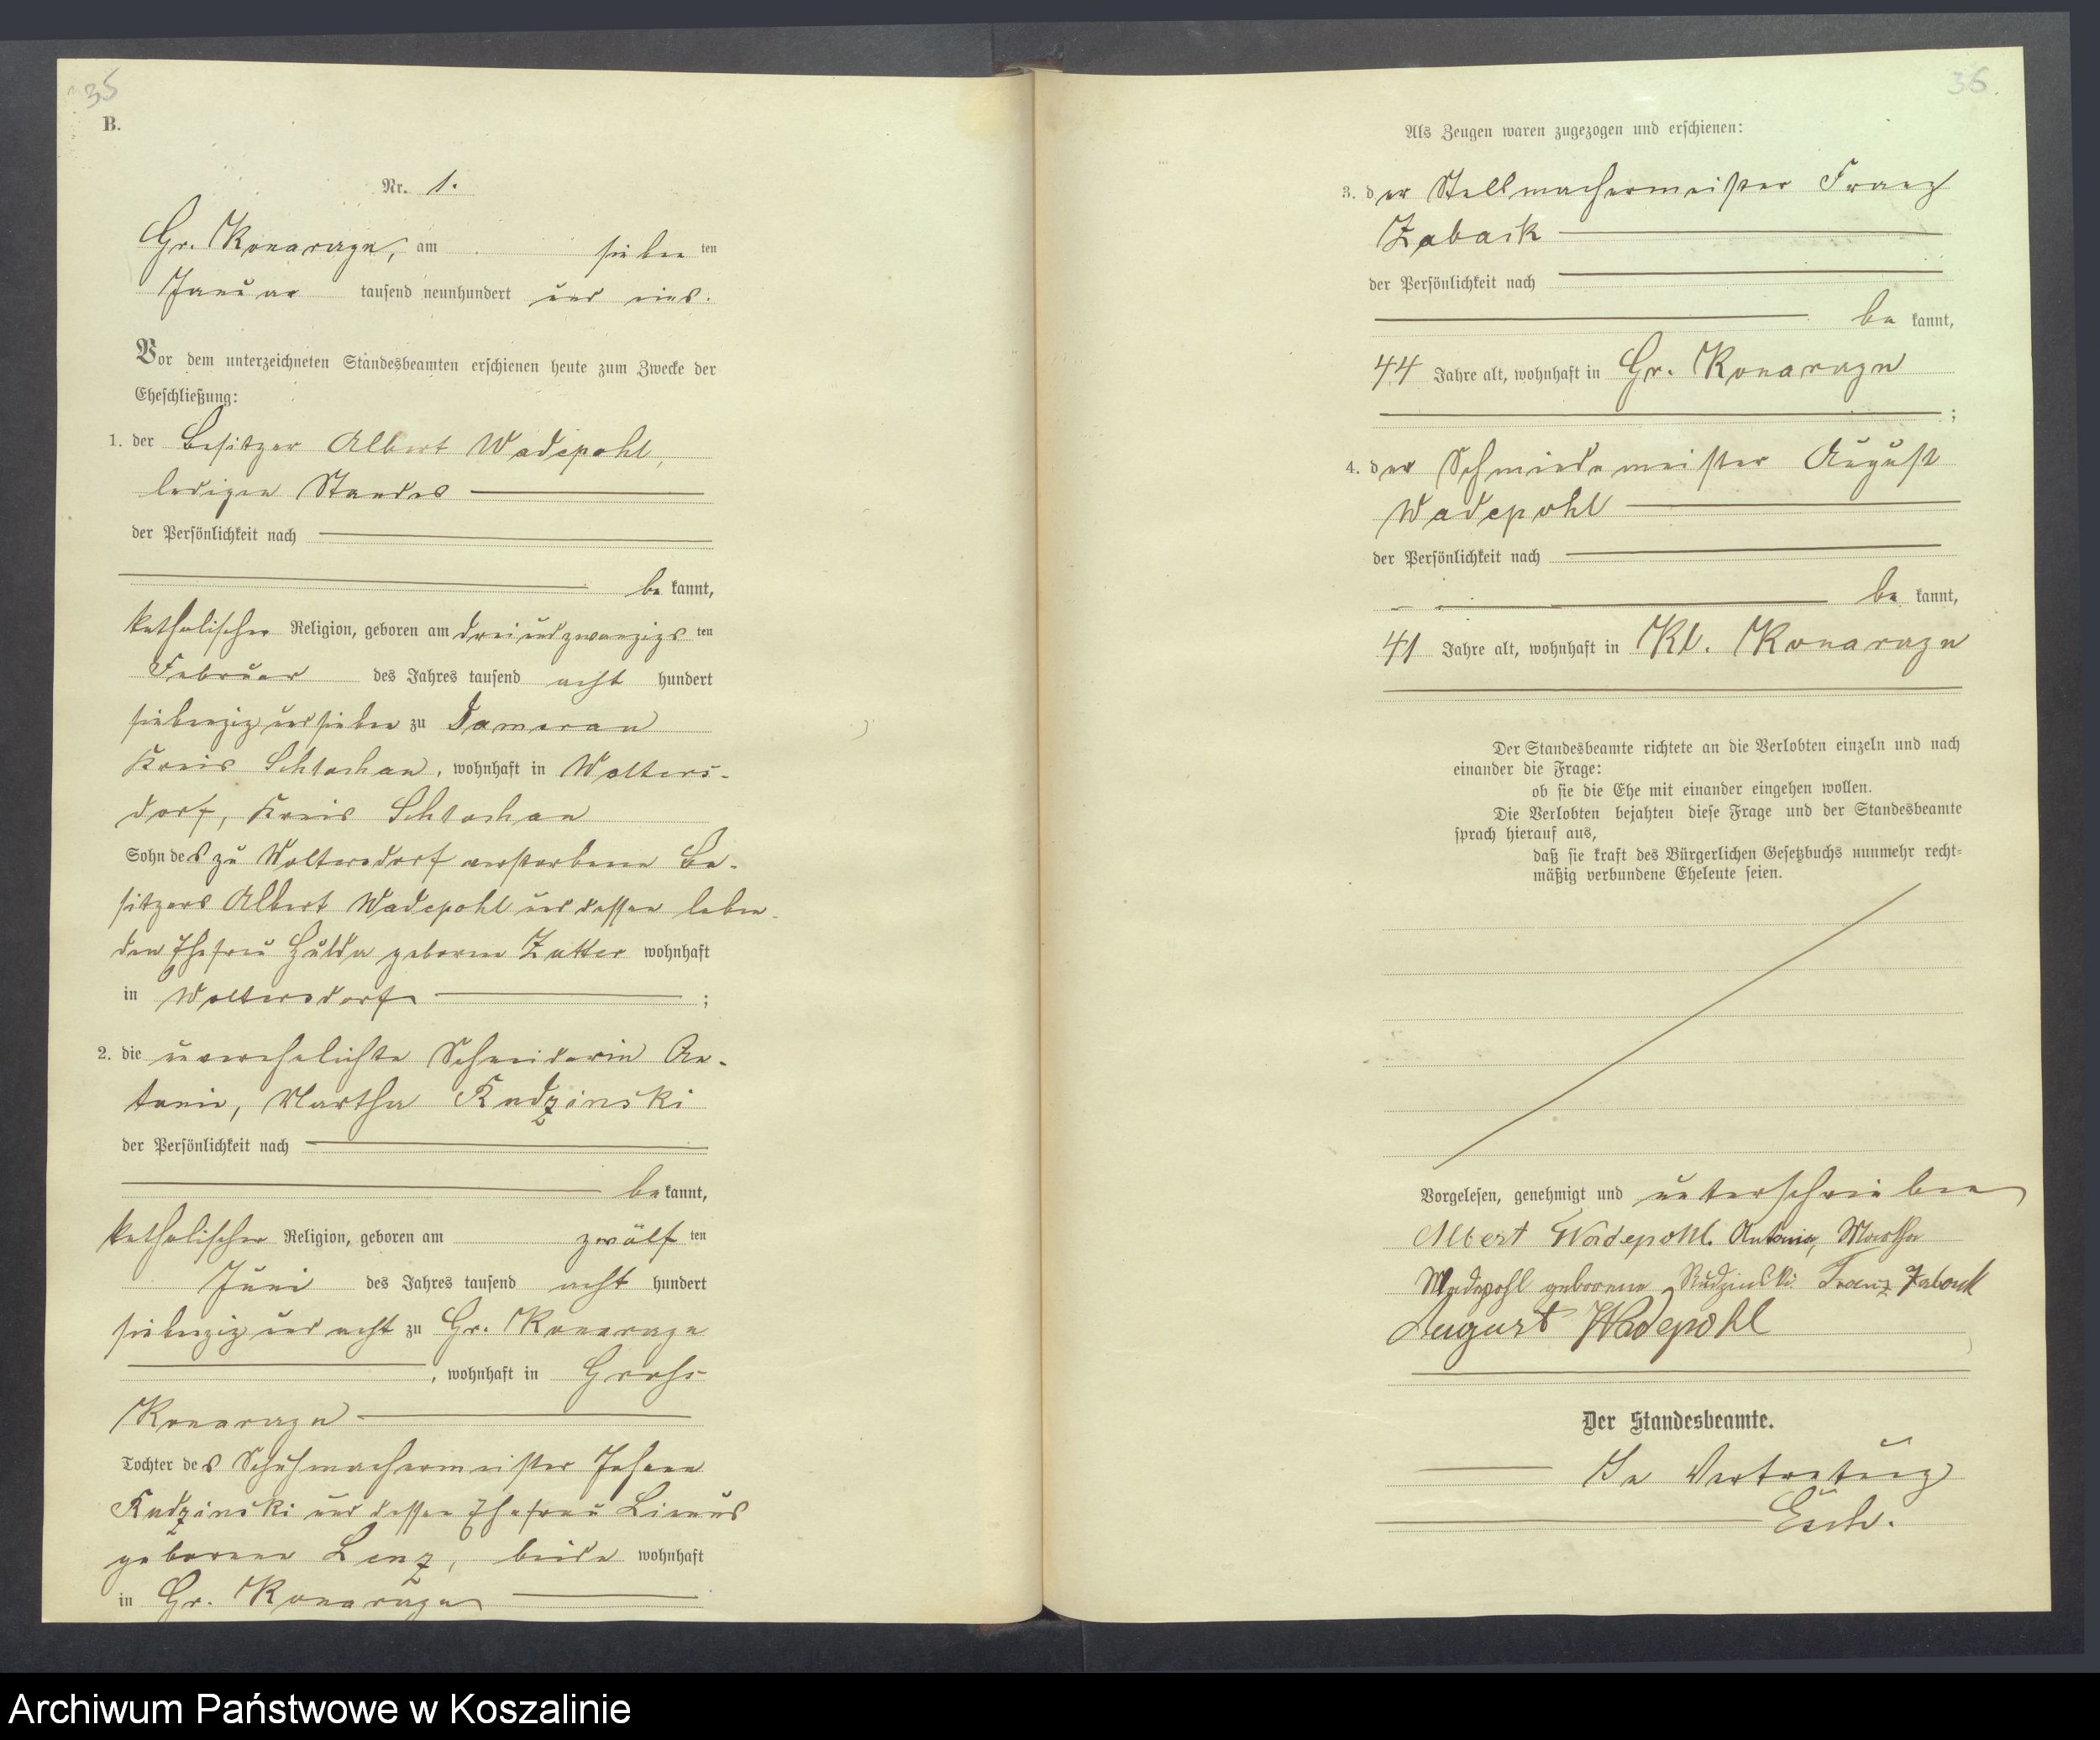 35
B.
Nr. 1.
Gr. Konarczyn, am sieben ten
Januar tausend neunhundert und eins.
Vor dem unterzeichneten Standesbeamten erschienen heute zum Zwecke der
Eheschließung:
1. der Besitzer Albert Wadepohl,
ledigen Standes
der Persönlichkeit nach
be kannt,
katholischer Religion, geboren am dreiundzwanzigs ten
Februar des Jahres tausend acht hundert
siebenzig und sieben zu Dameran
Kreis Schlochau, wohnhaft in Wolters-
dorf, Kreis Schlochau
Sohn des zu Woltersdorf verstorbenen Be-
sitzers Albert Wadepohl und dessen leben-
den Ehefrau Hulda geborene wohnhaft
in Woltersdorf ;
2. die unverehelichte Schneiderin An-
tonie, Martha Rudzinski
der Persönlichkeit nach
be kannt,
katholischer Religion, geboren am zwölf ten
Juni des Jahres tausend acht hundert
siebenzig und acht zu Gr. Konarczyn
, wohnhaft in Groß
Konarczyn
Tochter des Schuhmachermeister Johann
Rudzinski und dessen Ehefrau
geborene Lenz, beide wohnhaft
in Gr. Konarczyn
35.
Als Zeugen waren zugezogen und erschienen:
3. der Stellmachermeister Franz
Zaback
der Persönlichkeit nach
be kannt,
44 Jahre alt, wohnhaft in Gr. Konarczyn
;
4. der Schmiedemeister August
Wadepohl
der Persönlichkeit nach
be kannt,
41 Jahre alt, wohnhaft in Kl. Konarczyn
Der Standesbeamte richtete an die Verlobten einzeln und nach
einander die Frage:
ob sie die Ehe mit einander eingehen wollen.
Die Verlobten bejahten diese Frage und der Standesbeamte
sprach hierauf aus,
daß sie kraft des Bürgerlichen Gesetzbuchs nunmehr recht-
mäßig verbundene Eheleute seien.
Vorgelesen, genehmigt und unterschrieben
Albert Wadepohl. Antonie, Martha
Wadepohl geborene Rudzinski. Franz Zaback
August Wadepohl
Der Standesbeamte.
In Vertretung
Esch.
Archiwum Państwowe w Koszalinie